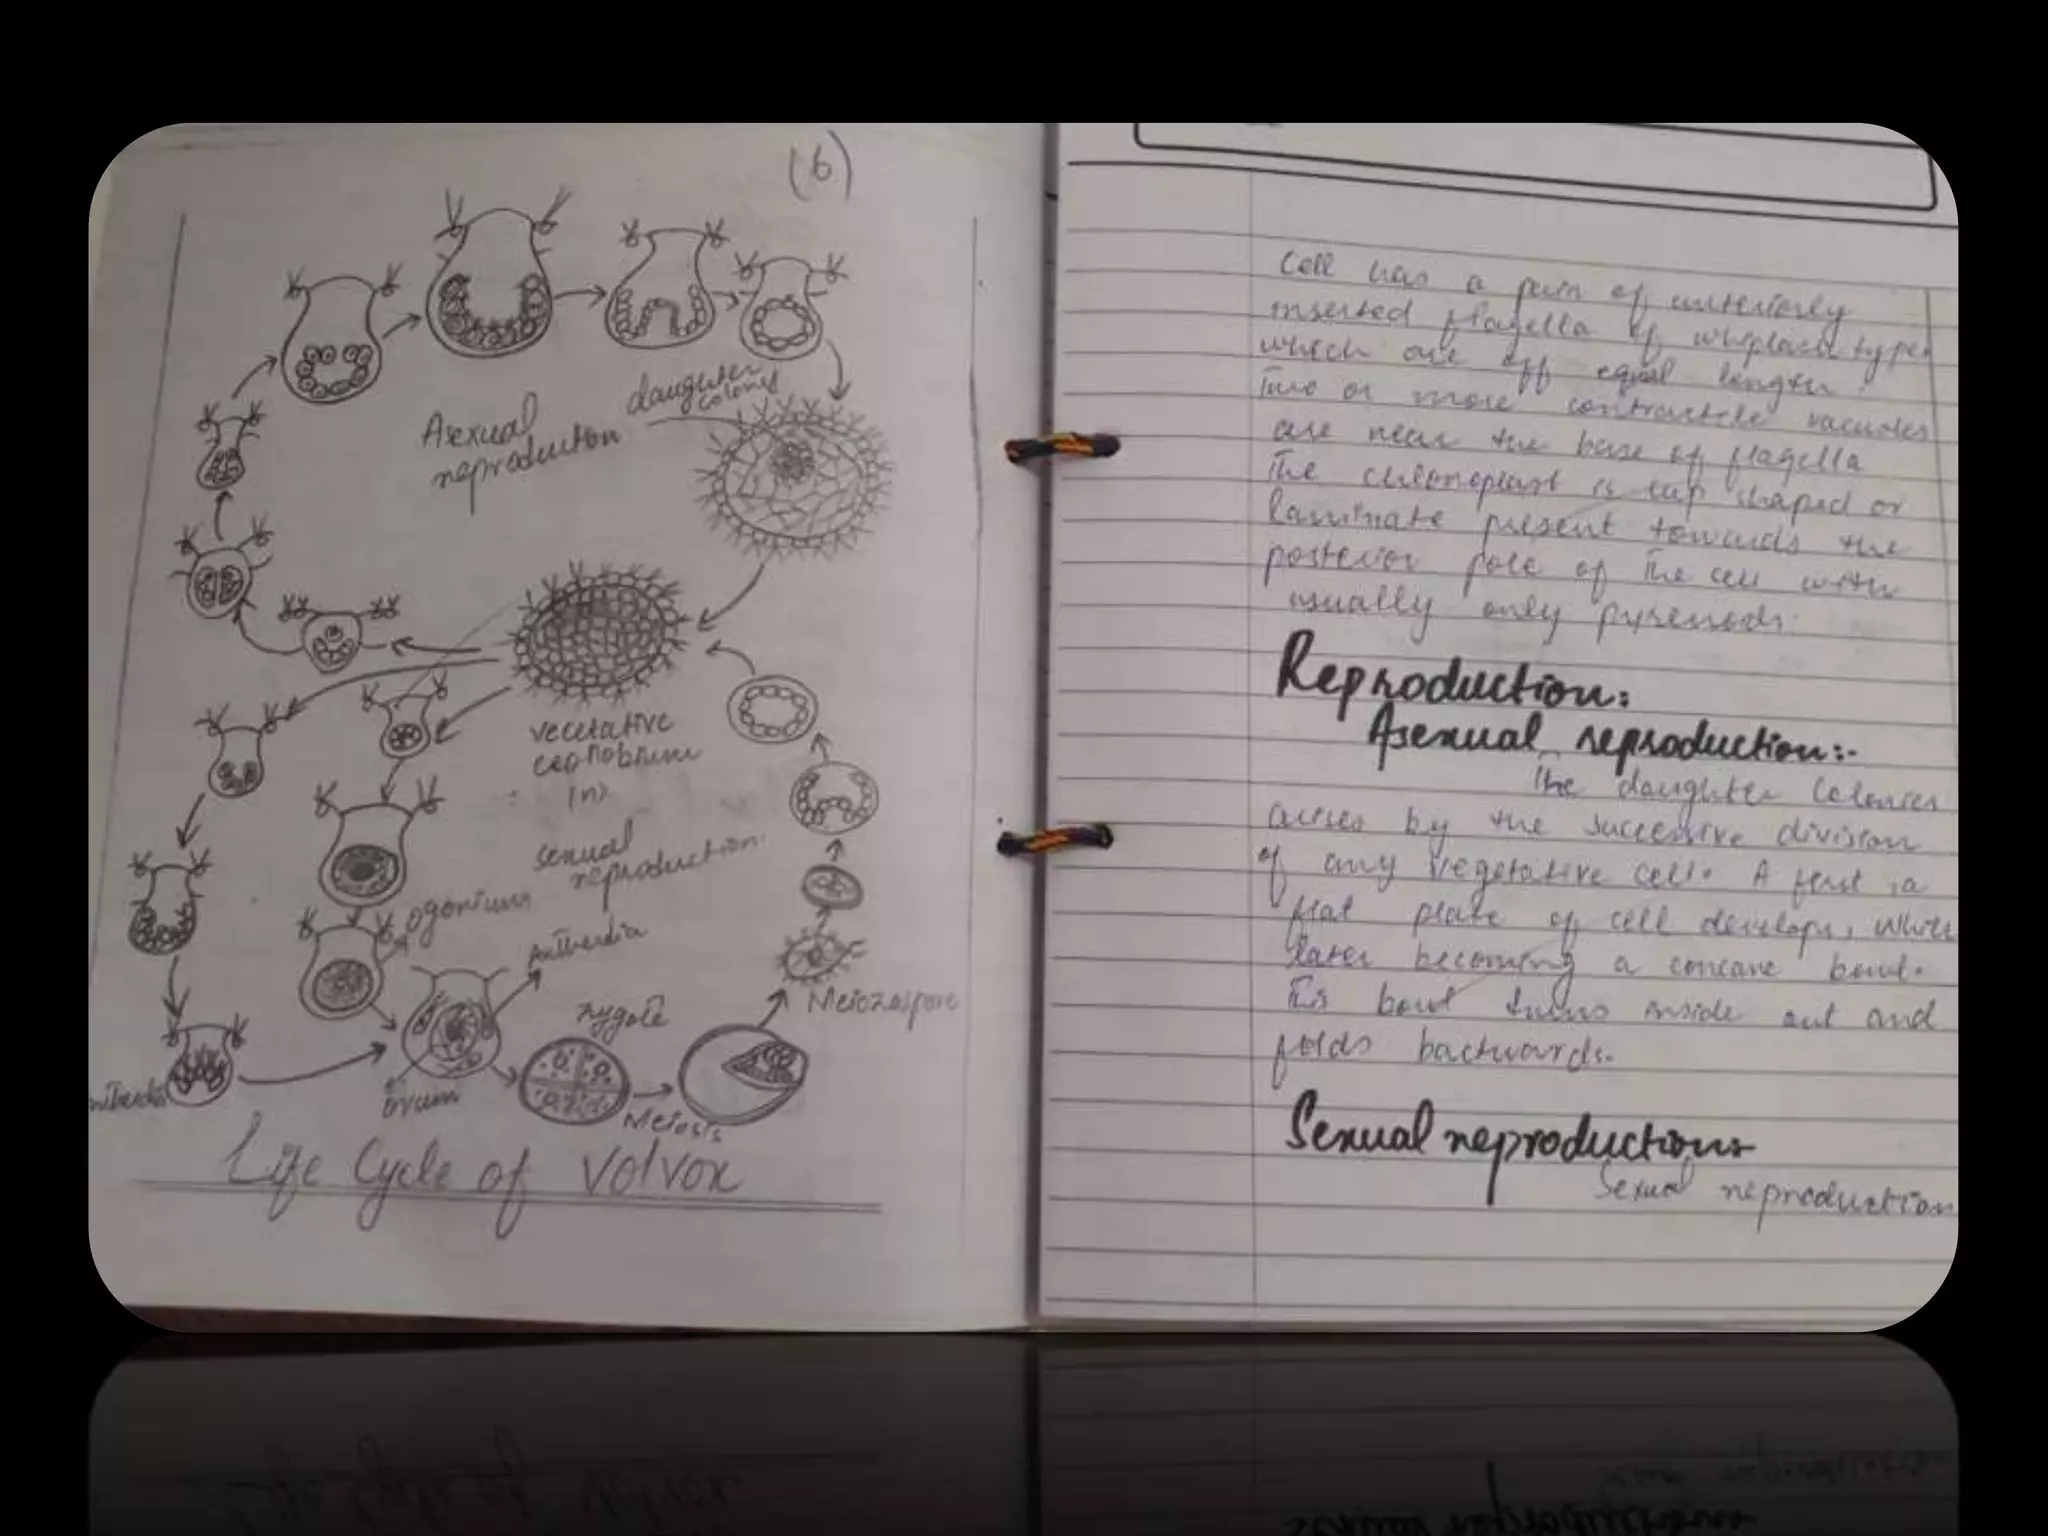 (6)
Asexual
reproduction
daughter
colones
vecetative
ceonobrium
(n)
sexual
reproduction
ogonium
Antherdia
zygote
Meiozospore
ovum
Meiosis
Life Cycle of Volvox
Cell has a pair of anteriorly
inserted flagella of whiplash type
which are off equal length.
Two or more contractile vacuoles
are near the base of flagella
The chloroplast is cup shaped or
laminate present towards the
posterior pole of the cell with
usually only pyrenoids.
Reproduction:
Asexual reproduction:-
The daughter Colonies
arises by the successive division
of any vegetative cell. A first a
flat plate of cell develops, which
later becoming a concave bowl.
This bowl turns inside out and
folds backwards.
Sexual reproduction
Sexual reproduction